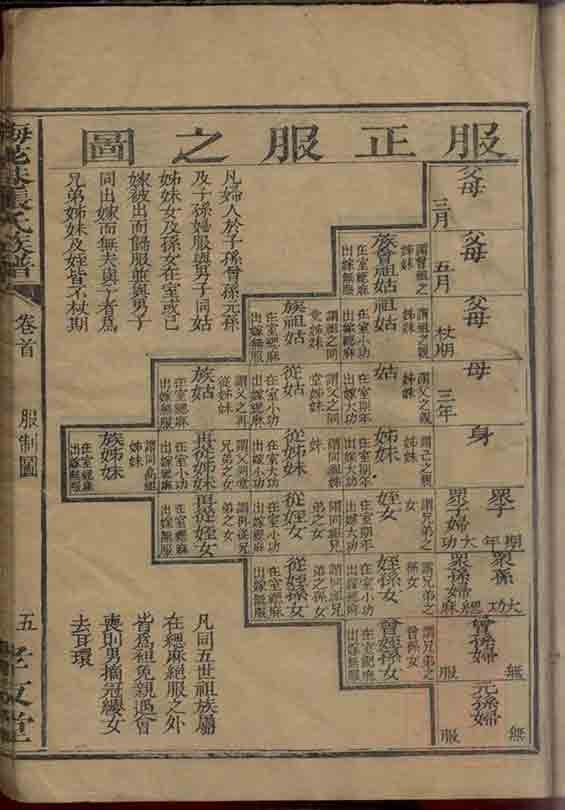 服正服之圖
父母
三月
父母
五月
父母
杖期
母
三年
身
眾子
期年
眾子婦
大功
眾孫
大功
眾孫婦
緦麻
曾孫婦
無服
元孫婦
無服
謂曾祖之
姊妹
族曾祖姑
在室緦麻
出嫁無服
謂祖之親
姊妹
祖姑
在室小功
出嫁緦麻
謂祖之同
堂姊妹
族祖姑
在室緦麻
出嫁無服
謂父之親
姊妹
姑
在室期年
出嫁大功
謂父之同
堂姊妹
從姑
在室小功
出嫁緦麻
謂父之再
從姊妹
族姑
在室緦麻
出嫁無服
謂己之親
姊妹
姊妹
在室期年
出嫁大功
謂同祖姊
妹
從姊妹
在室大功
出嫁小功
謂同堂
兄弟之女
再從姊妹
在室小功
出嫁緦麻
謂同高祖
姊妹
族姊妹
在室緦麻
出嫁無服
謂兄弟之
女
姪女
在室期年
出嫁大功
謂同祖兄
弟之女
從姪女
在室小功
出嫁緦麻
謂再從兄
弟之女
再從姪女
在室緦麻
出嫁無服
謂兄弟之
孫女
姪孫女
在室小功
出嫁緦麻
謂同祖兄
弟之孫女
從姪孫女
在室緦麻
出嫁無服
謂兄弟之
曾孫女
曾姪孫女
在室緦麻
出嫁無服
凡婦人於子孫曾孫元孫
及子孫婦服與男子同姑
姊妹女及孫女在室或已
嫁被出而歸服並與男子
同出嫁而無夫與子者為
兄弟姊妹及姪皆不杖期
凡同五世祖族屬
在緦麻絕服之外
皆為袒免親遇會
喪則男摘冠纓女
去耳環
氏族譜
卷首
服制圖
五
孝友堂